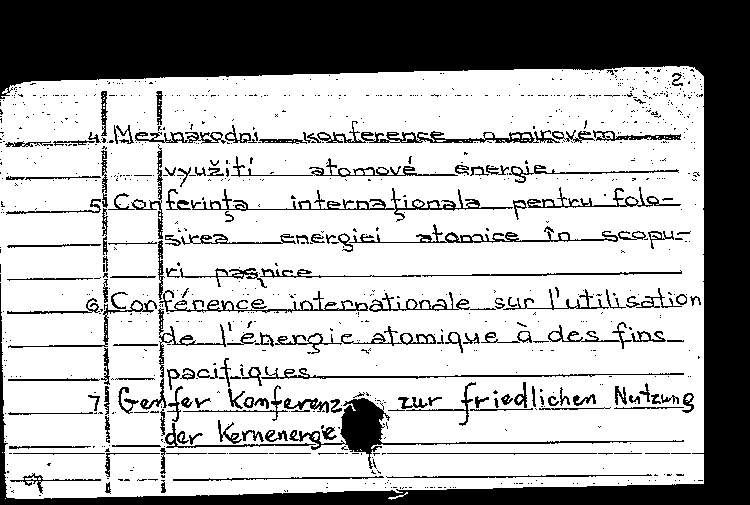 2
4 Mezinárodni konference o mirovém
využití atomové energie.
5 Conferinţa internaţionala pentru folo-
sirea energiei atomice în scopu-
ri paşnice
6 Conférence internationale sur l'utilisation
de l'énergie atomique à des fins
pacifiques
7 Genfer Konferenz zur friedlichen Nutzung
der Kernenergie